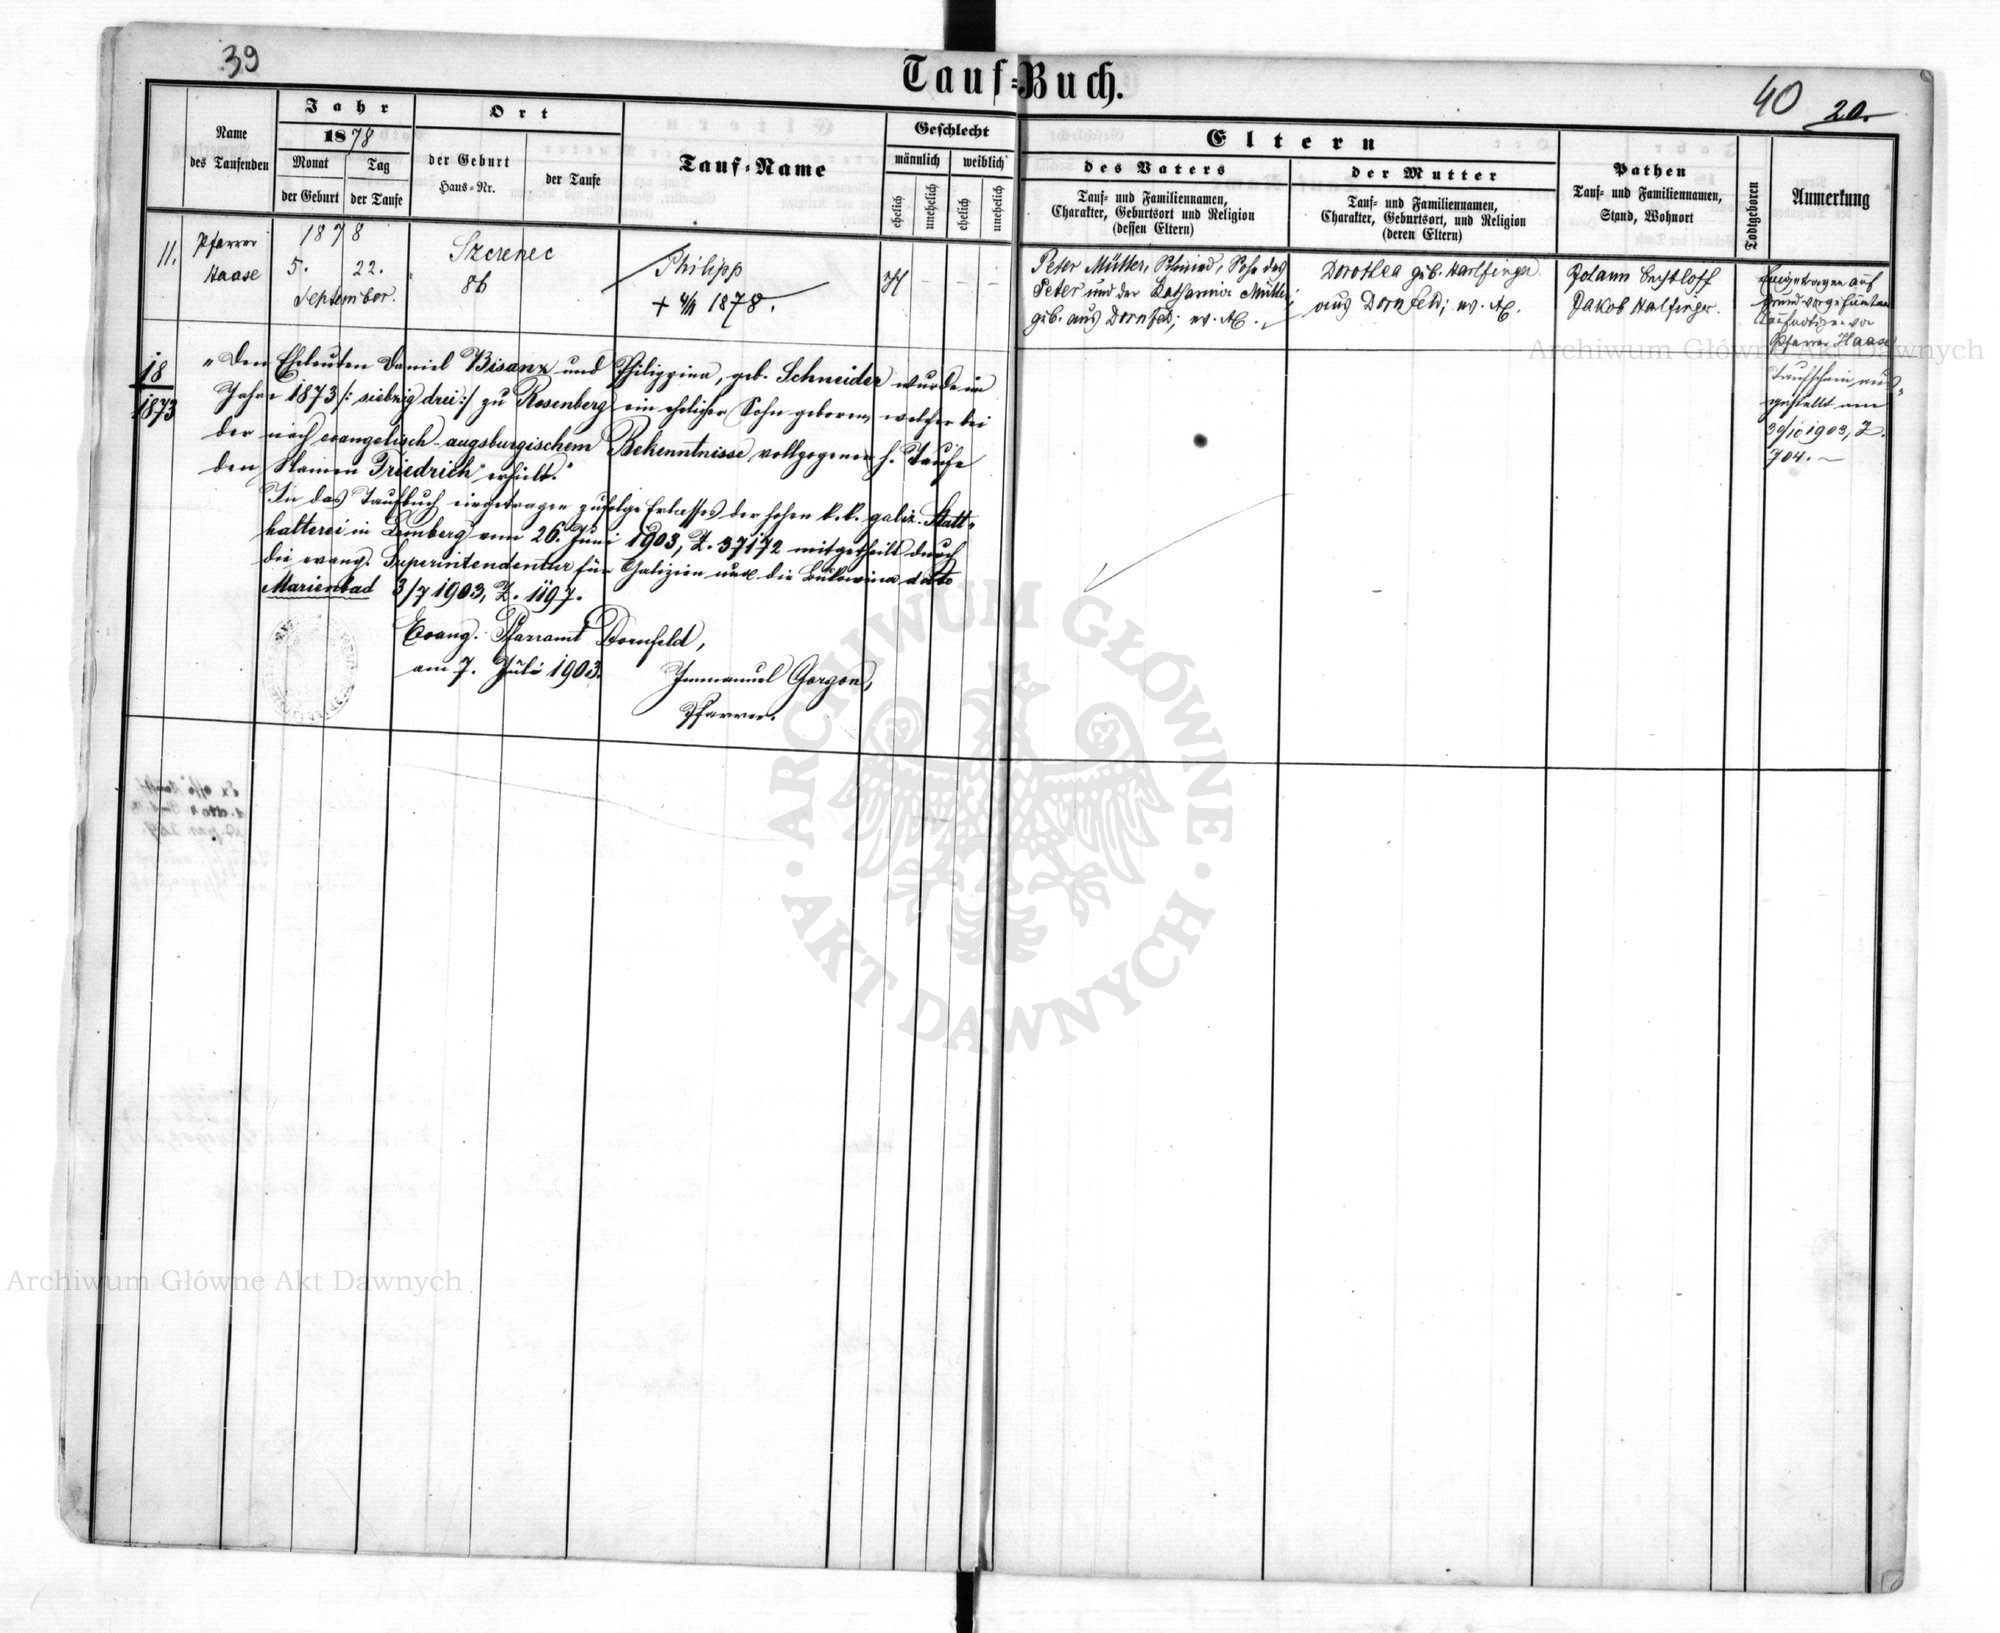 39
Tauf-Buch.
40 20.
Name
des Taufenden
Jahr
1878
Monat
der Geburt
Tag
der Taufe
Ort
der Geburt
Haus-Nr.
der Taufe
Tauf-Name
Geschlecht
männlich weiblich
ehelich
unehelich
ehelich
unehelich
Eltern
des Vaters
Tauf- und Familiennamen,
Charakter, Geburtsort und Religion
(dessen Eltern)
der Mutter
Tauf- und Familiennamen,
Charakter, Geburtsort, und Religion
(deren Eltern)
Pathen
Tauf- und Familiennamen,
Stand, Wohnort
Todtgeboren
Anmerkung
11.
Pfarrer
Haase
1878
5. 22.
September.
Szczerzec
86
Philipp
+ 4/11 1878.
Peter Müller, Schmied, Sohn des
Peter und der Katharina Müller,
geb. aus Dornfeld; ev. AC.
Dorothea geb. Harlfinger
aus Dornfeld; ev. AC.
Johann
Jakob Harlfinger.
Eingetragen auf
Grund
Pfarrer Haase
18
1873
"Den Eheleuten Daniel Bisanz und Philippina, geb. Schneider wurde im
Jahre 1873 /: siebzig drei :/ zu Rosenberg ein ehelicher Sohn geboren, welcher bei
der nach evangelisch-augsburgischem Bekenntnisse vollzogenen h. Taufe
den Namen "Friedrich" erhielt."
In das Taufbuch eingetragen zufolge Erlasses der hohen k. k. galiz. Statt-
halterei in Lemberg vom 26. Juni 1903, Z. 37172 mitgetheilt durch
die evang. Superintendentur für Galizien und die Bukowina dato
Marienbad 3/7 1903, Z. 1197.
Evang. Pfarramt Dornfeld,
am 7. Juli 1903.
Immanuel Gorgon,
Pfarrer.
Taufschein aus-
gestellt am
30/10 1903, Z.
704.
Archiwum Główne Akt Dawnych
ARCHIWUM GŁÓWNE
AKT DAWNYCH
Archiwum Główne Akt Dawnych